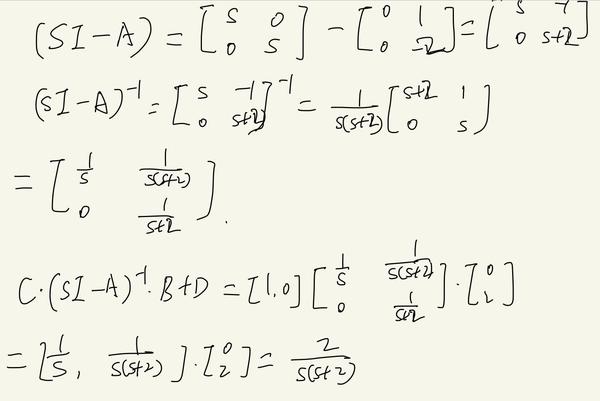 (SI-A) = [S 0; 0 S] - [0 1; 0 -2] = [S -1; 0 S+2]
(SI-A)^-1 = [S -1; 0 S+2]^-1 = 1/(S(S+2)) [S+2 1; 0 S]
= [1/S 1/(S(S+2)); 0 1/(S+2)].
C·(SI-A)^-1·B+D = [1,0] [1/S 1/(S(S+2)); 0 1/(S+2)]·[0; 2]
= [1/S, 1/(S(S+2))]·[0; 2] = 2/(S(S+2))